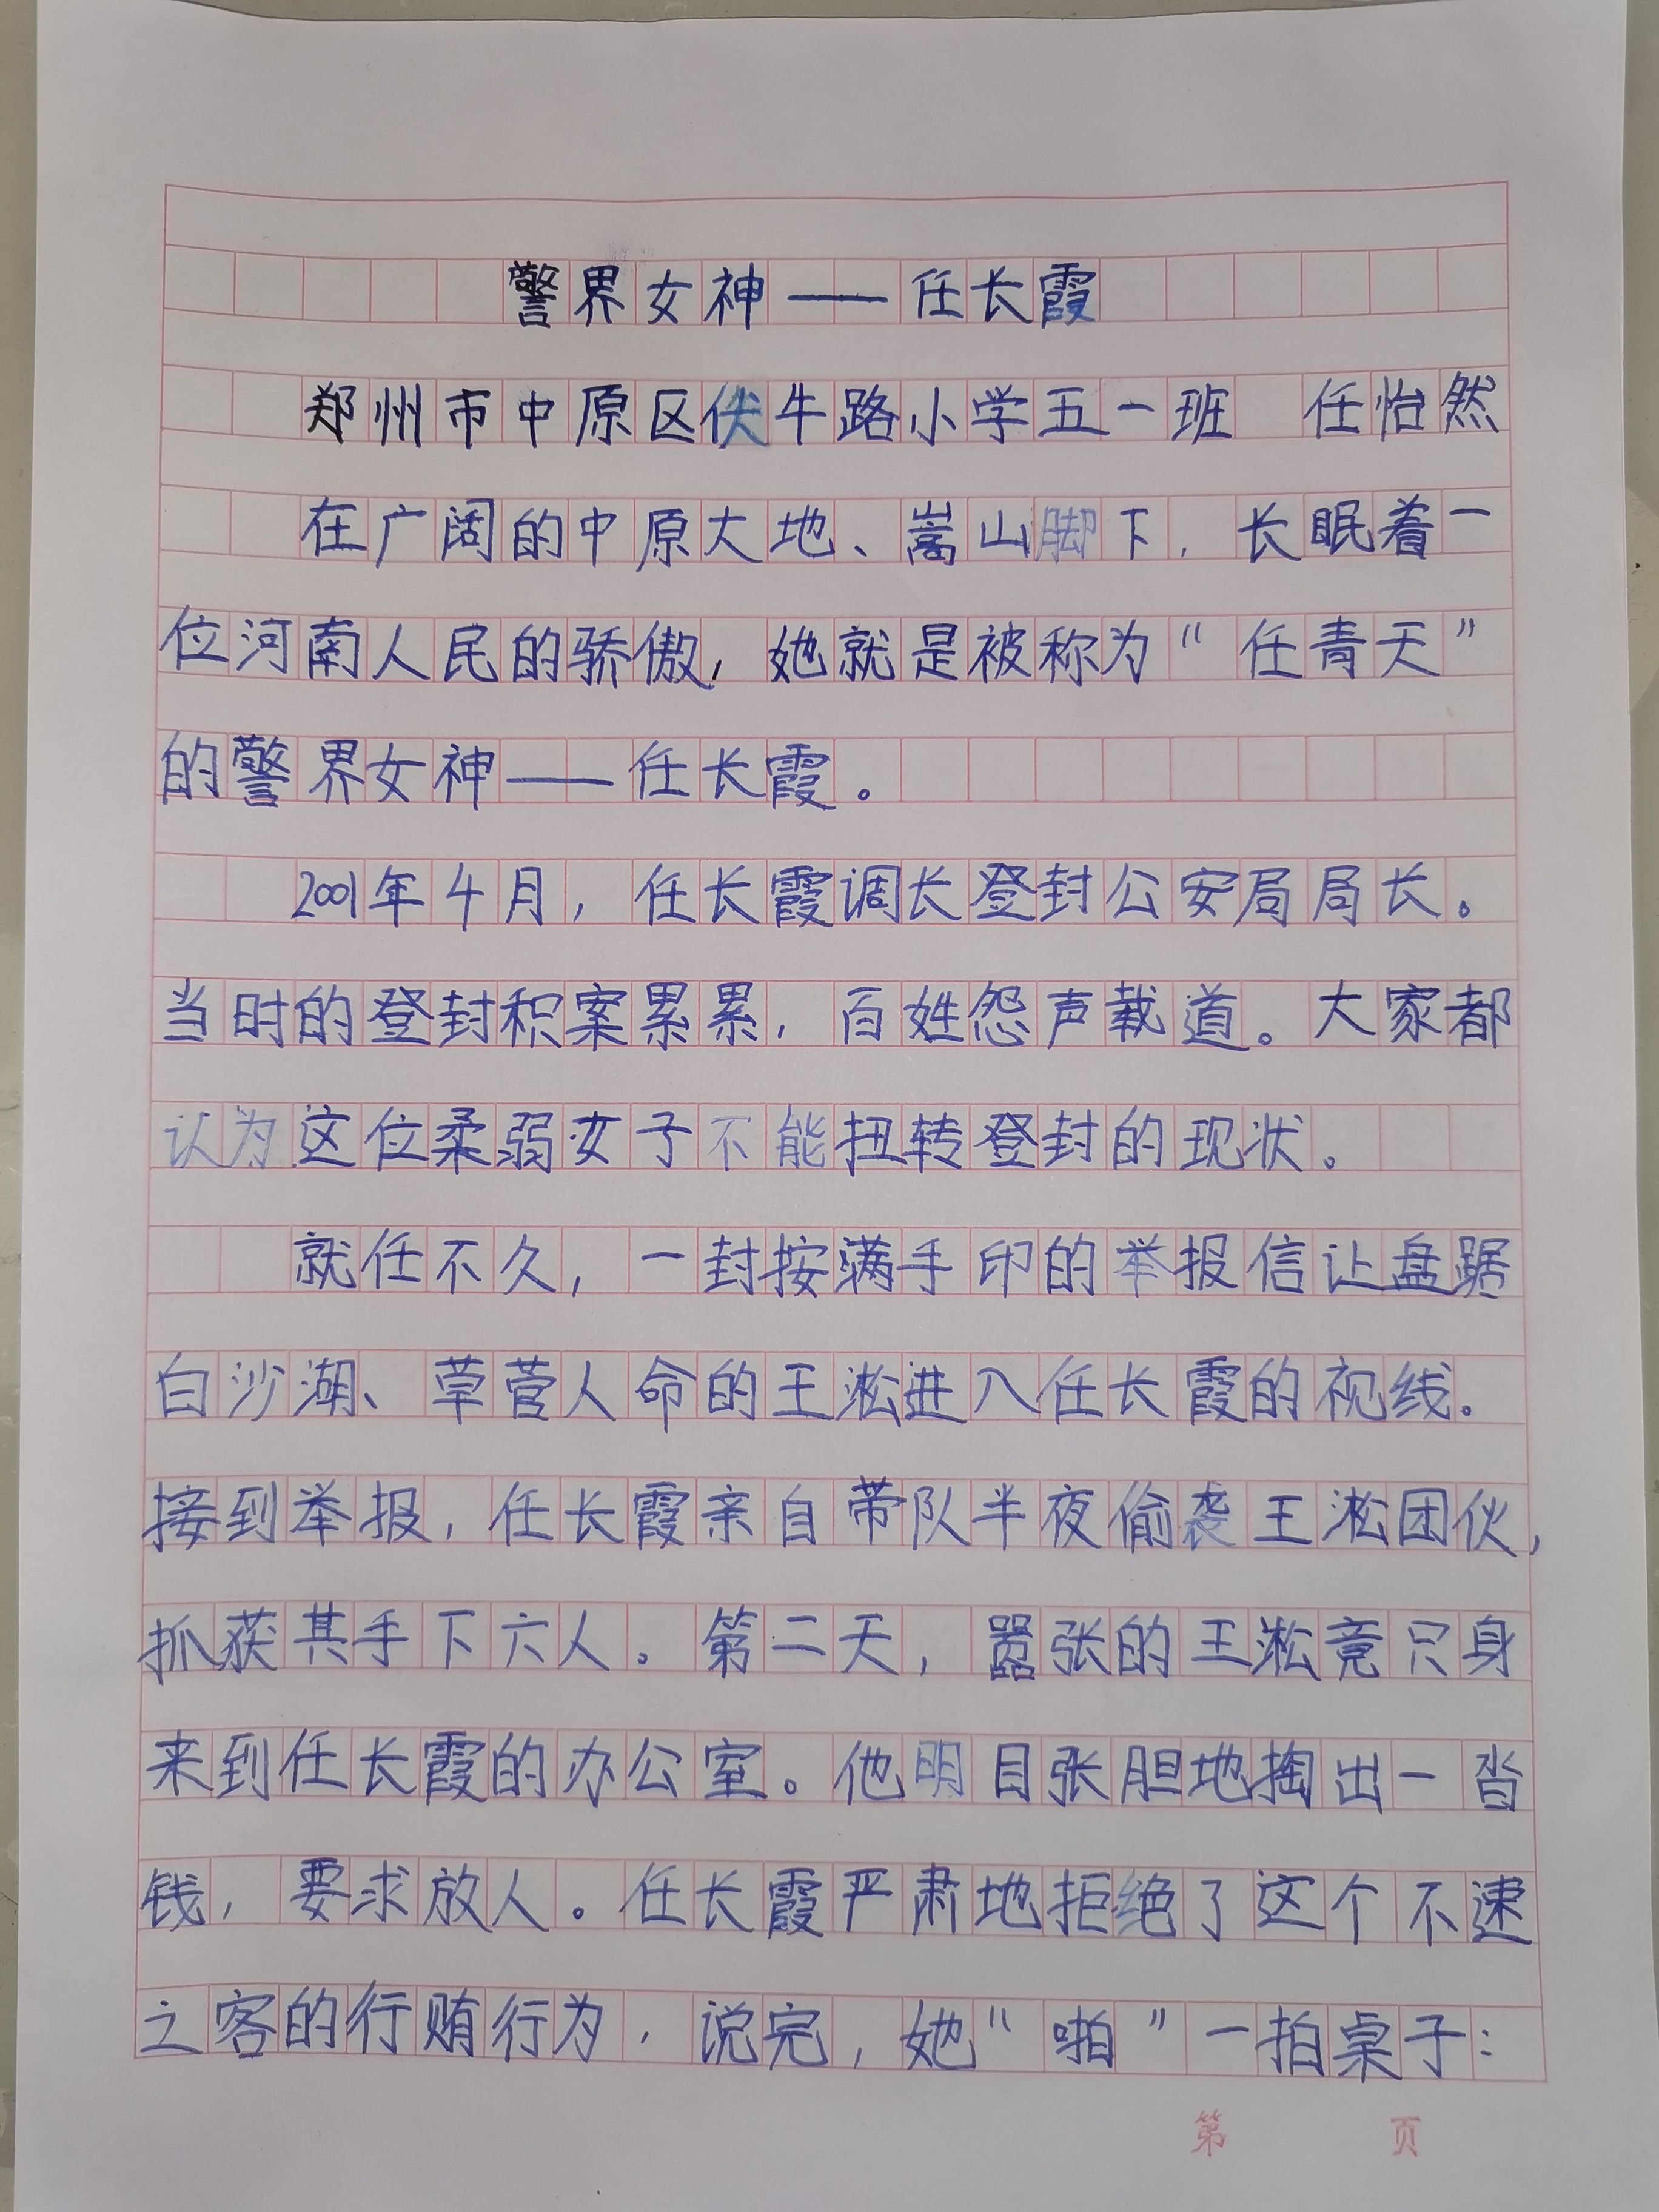 警界女神——任长霞
郑州市中原区伏牛路小学五一班 任怡然
在广阔的中原大地、嵩山脚下，长眠着一
位河南人民的骄傲，她就是被称为“任青天”
的警界女神——任长霞。
2001年4月，任长霞调长登封公安局局长。
当时的登封积案累累，百姓怨声载道。大家都
认为这位柔弱女子不能扭转登封的现状。
就任不久，一封按满手印的举报信让盘踞
白沙湖、草菅人命的王淞进入任长霞的视线。
接到举报，任长霞亲自带队半夜偷袭王淞团伙，
抓获其手下六人。第二天，嚣张的王淞竟只身
来到任长霞的办公室。他明目张胆地掏出一沓
钱，要求放人。任长霞严肃地拒绝了这个不速
之客的行贿行为，说完，她“啪”一拍桌子：
第 页